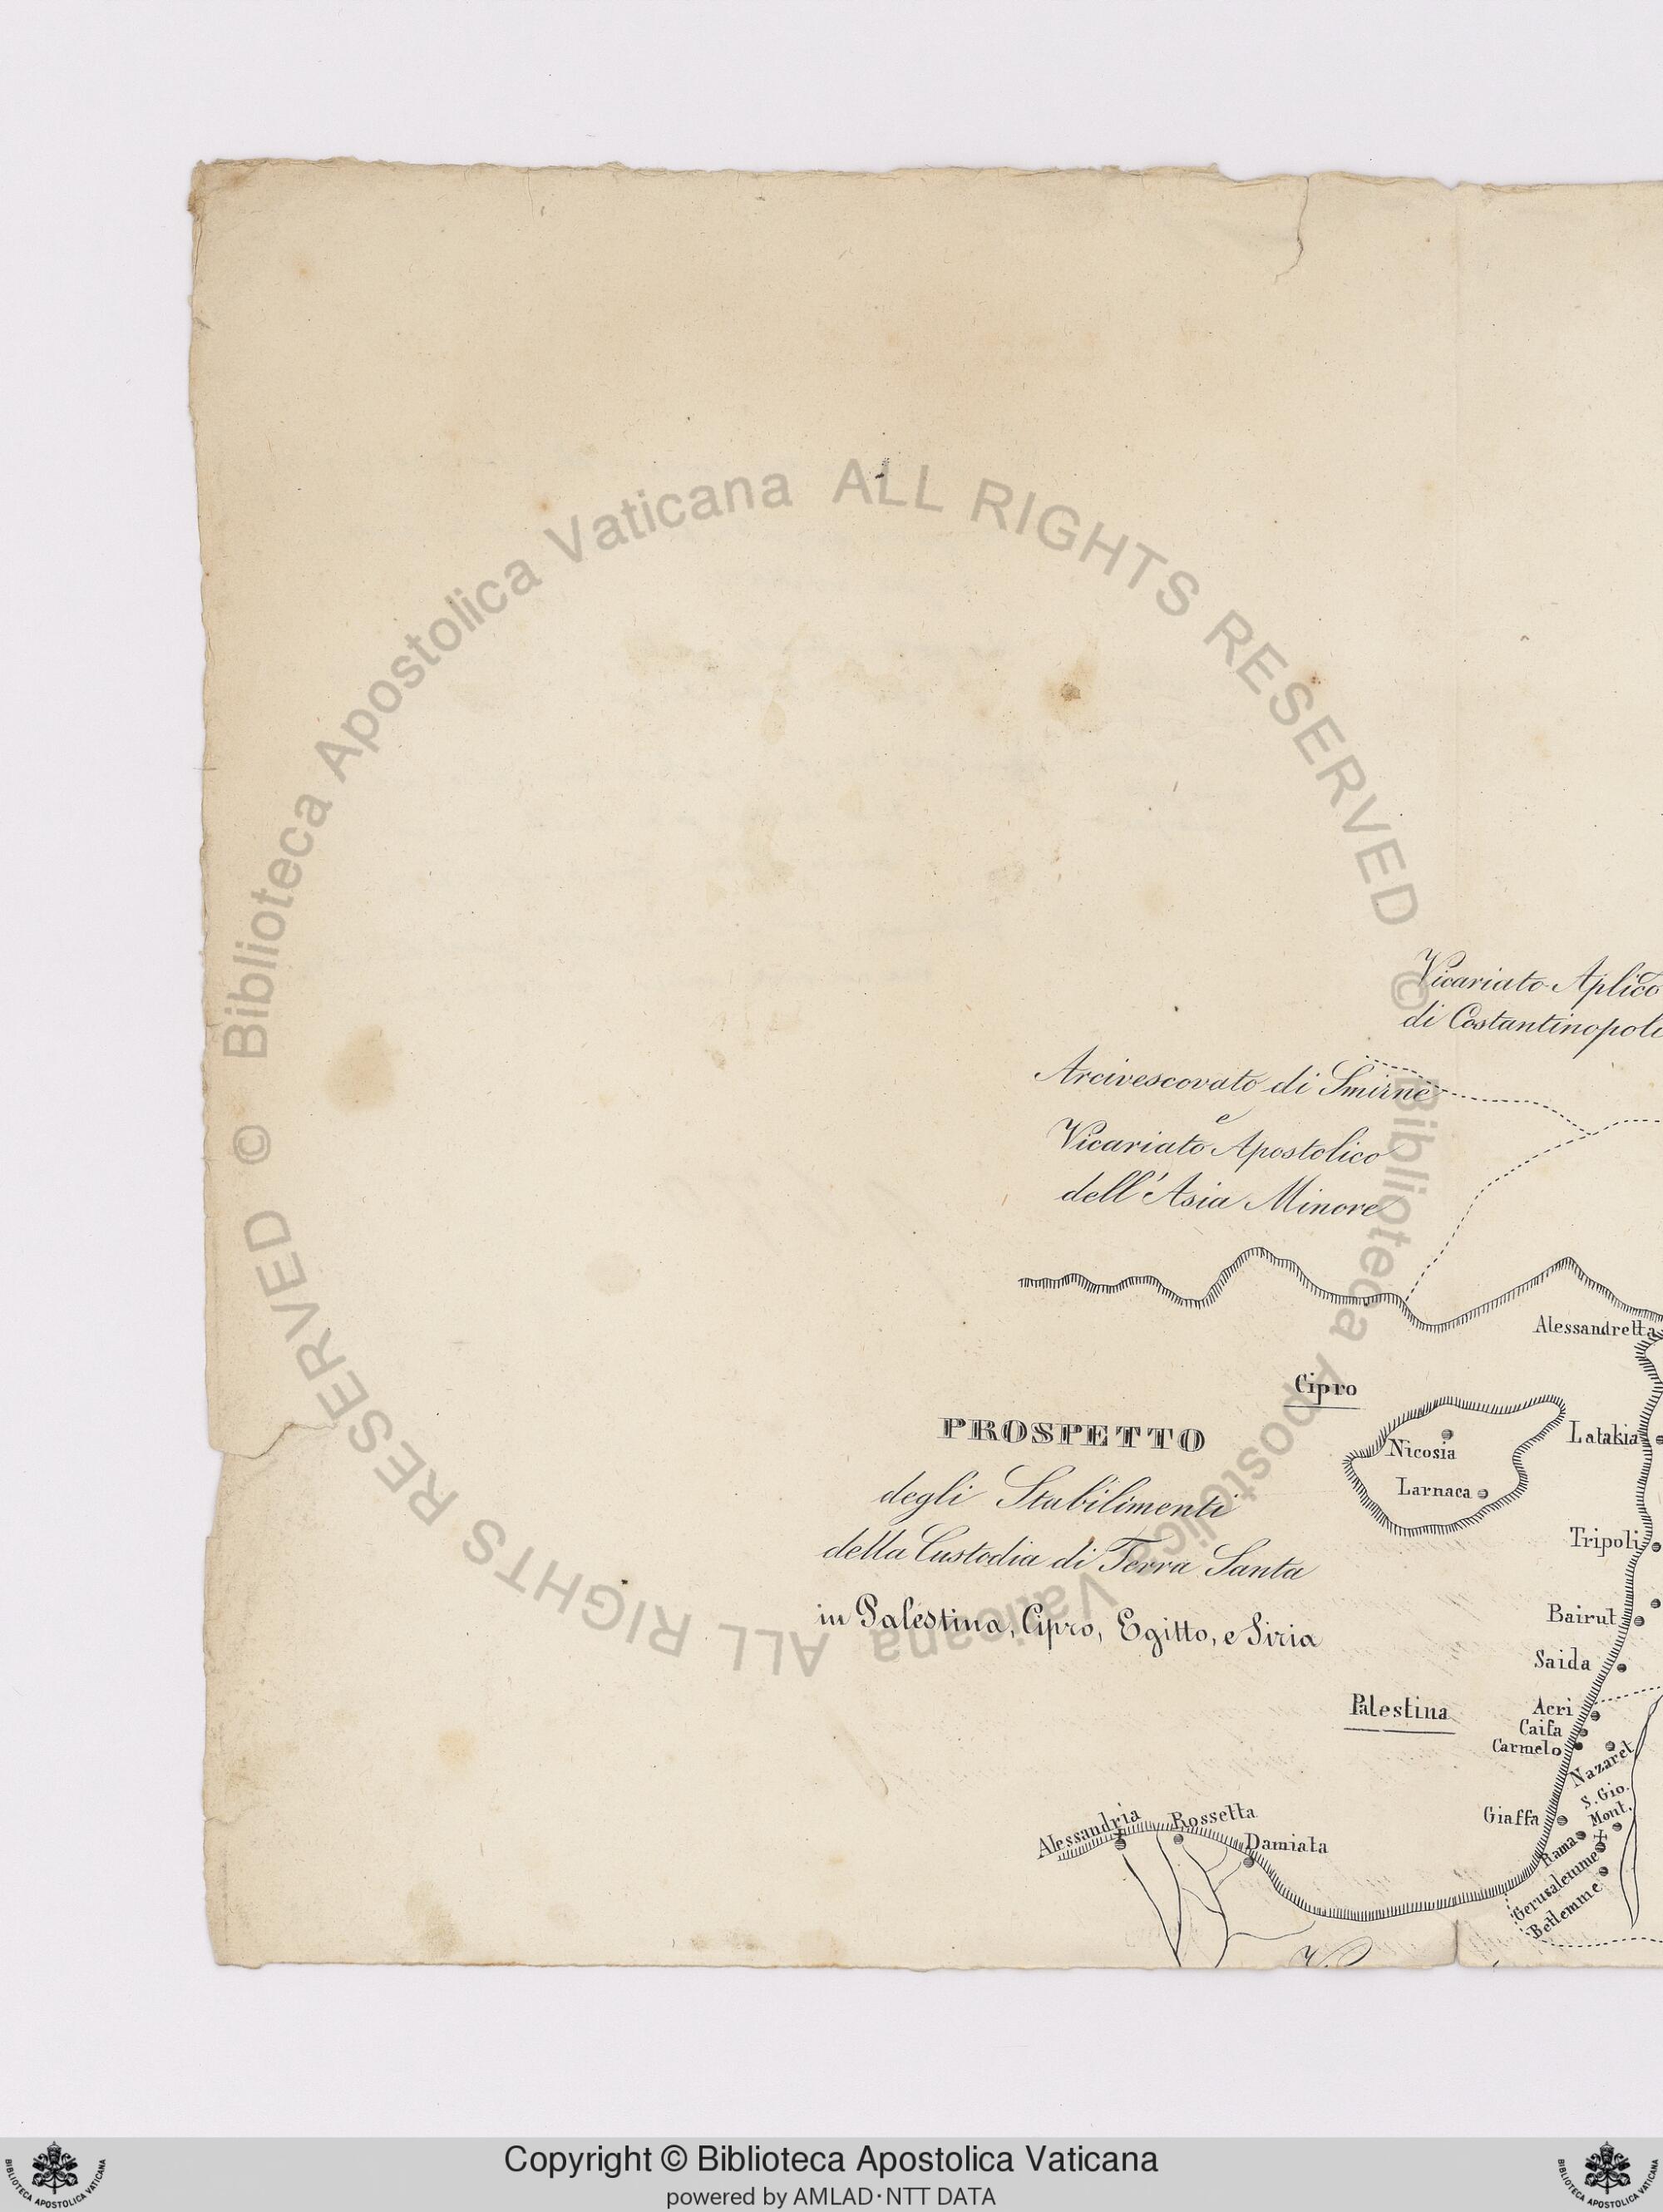 © Biblioteca Apostolica Vaticana ALL RIGHTS RESERVED © Biblioteca Apostolica Vaticana ALL RIGHTS RESERVED
Vicariato Aplico
di Costantinopoli
Arcivescovato di Smirne
e
Vicariato Apostolico
dell'Asia Minore
Alessandretta
Cipro
Nicosia
Larnaca
Latakia
PROSPETTO
degli Stabilimenti
della Custodia di Terra Santa
in Palestina, Cipro, Egitto, e Siria
Tripoli
Bairut
Saida
Palestina
Acri
Caifa
Carmelo
Nazaret
S. Gio.
Mont.
Giaffa
Rama
Gerusalemme
Betlemme
Alessandria
Rossetta
Damiata
Copyright © Biblioteca Apostolica Vaticana
powered by AMLAD·NTT DATA
BIBLIOTECA APOSTOLICA VATICANA
BIBLIOTECA APOSTOLICA VATICANA